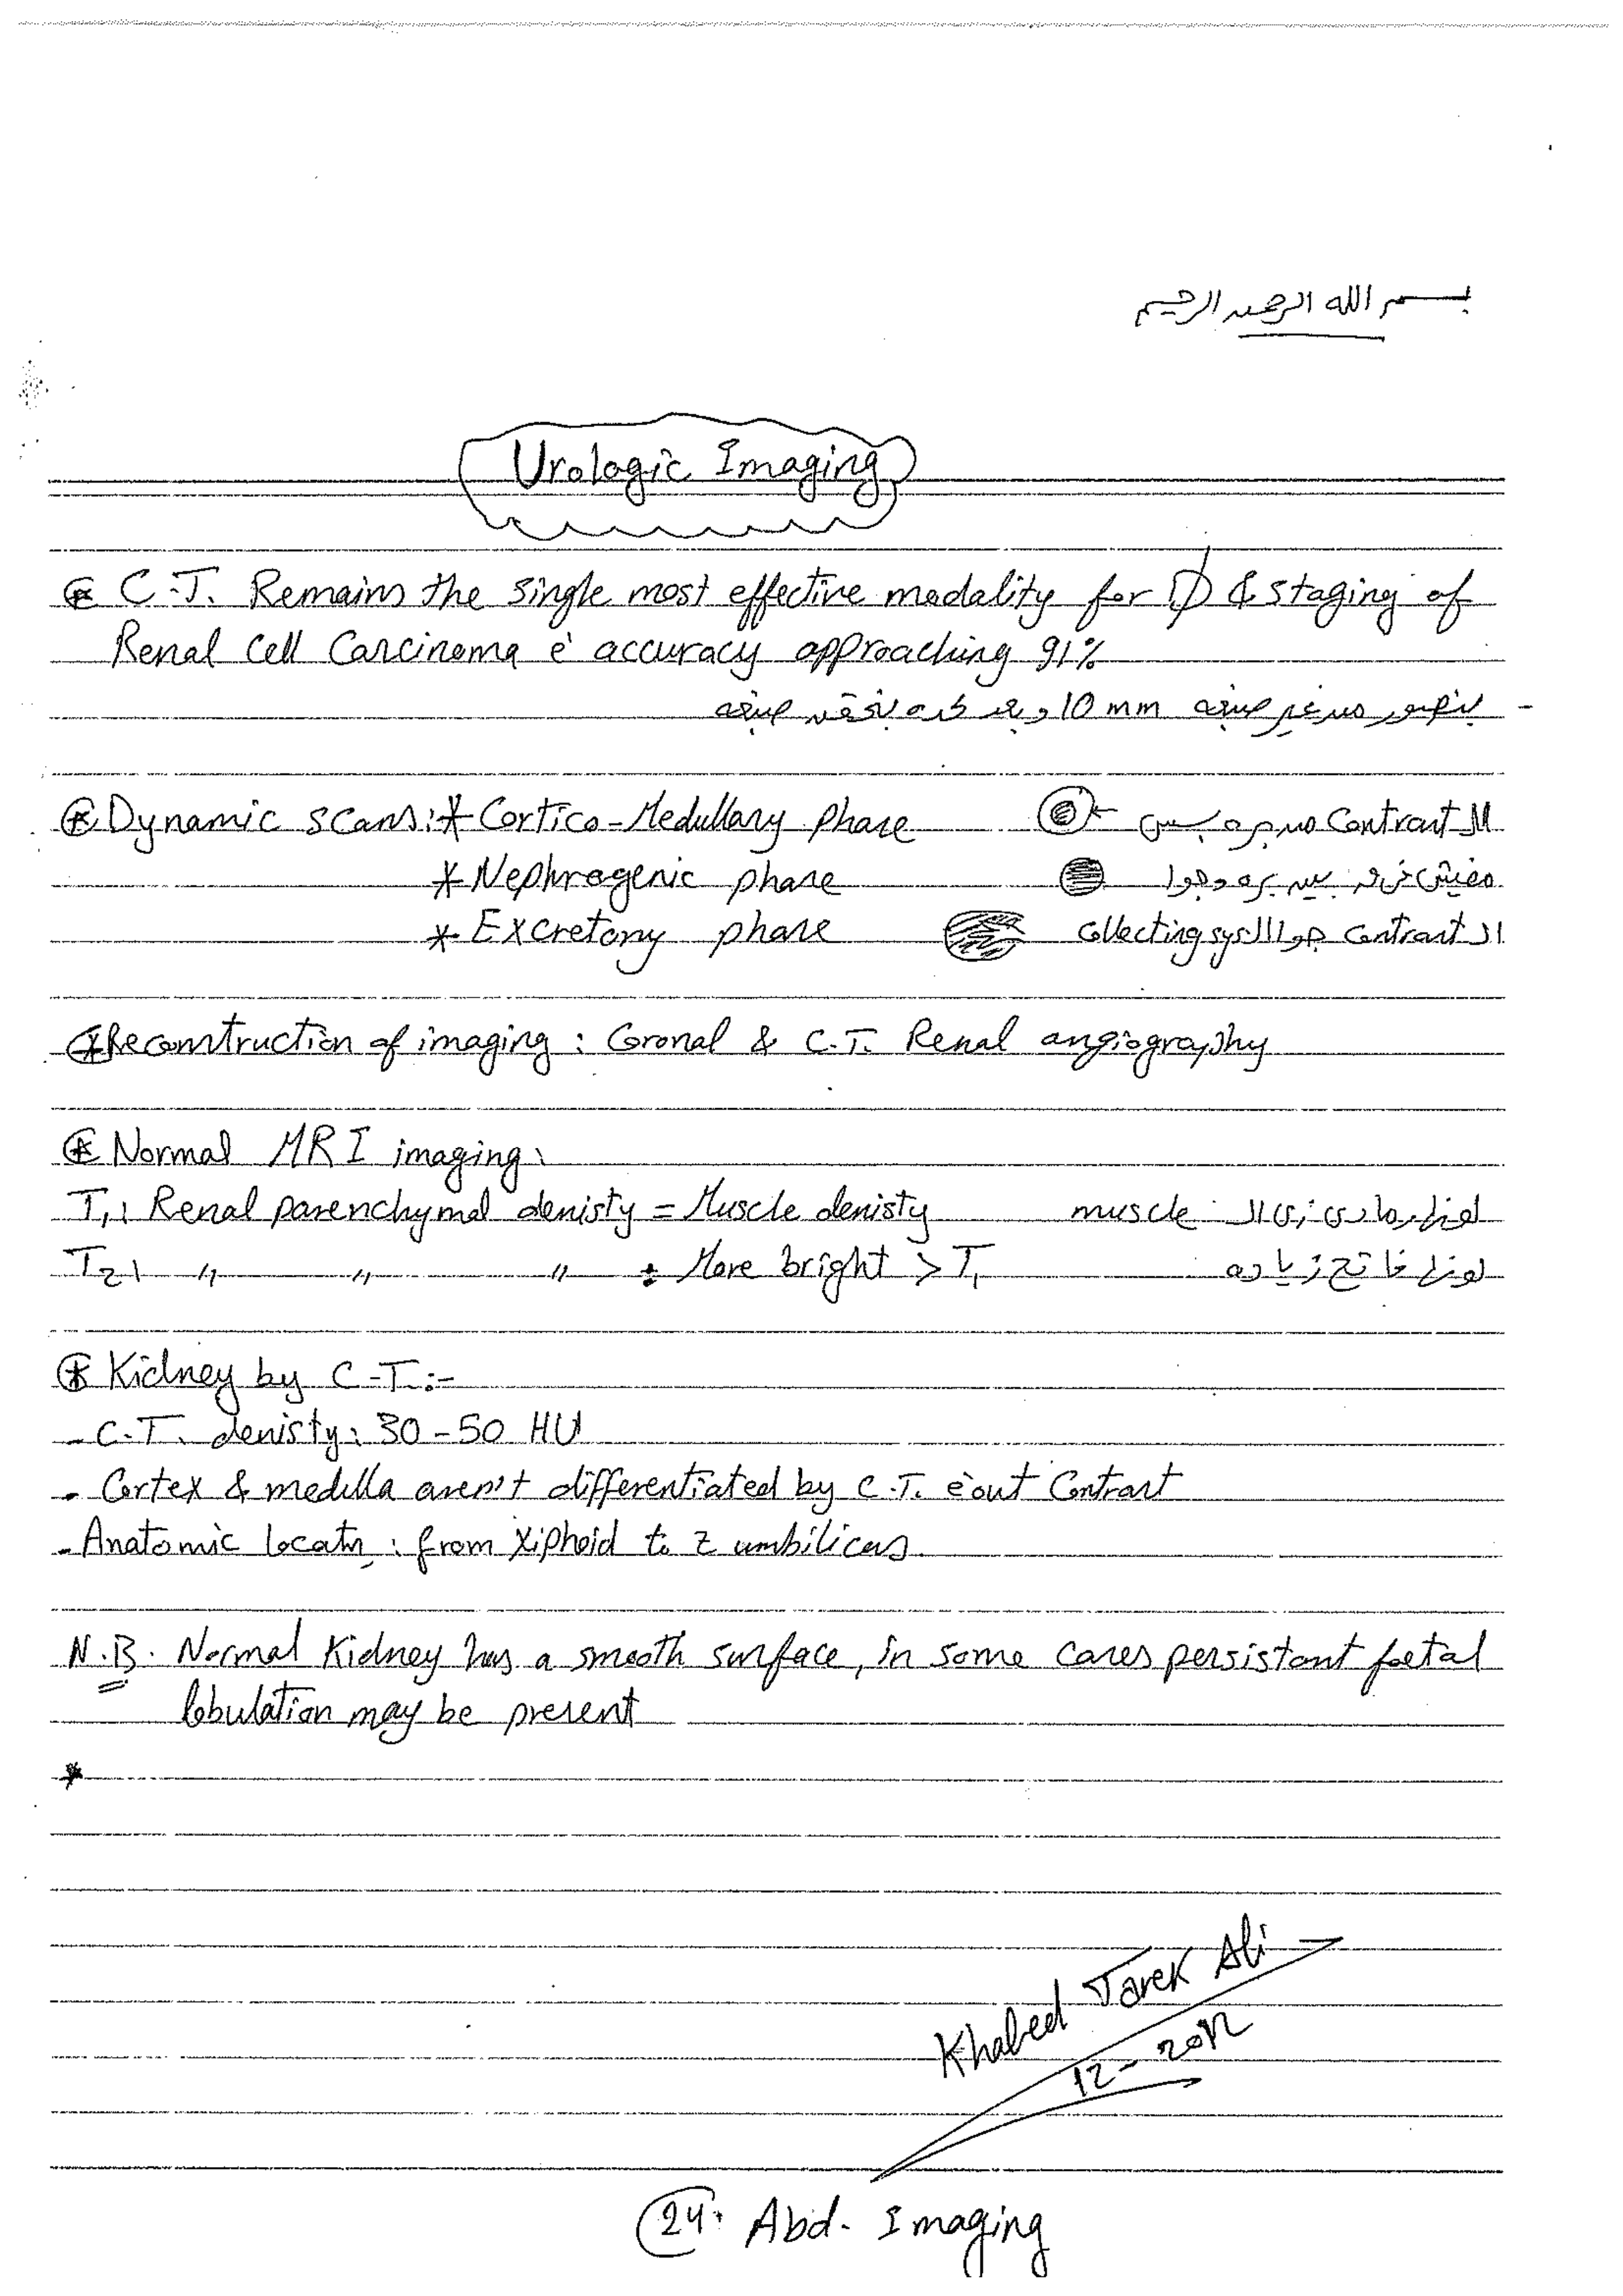 بسم الله الرحمن الرحيم
Urologic Imaging
* C.T. Remains the single most effective modality for D & staging of
Renal Cell Carcinoma è accuracy approaching 91%
- بنصور من غير صبغه 10 mm وبعد كده بنحقن صبغه
* Dynamic scans: * Cortico-Medullary phase الـ Contrast من بره بس
* Nephrogenic phase مفيش فرق بين بره وجوا
* Excretory phase الـ Contrast جوا الـ collecting sys
* Reconstruction of imaging : Coronal & C.T. Renal angiography
* Normal MRI imaging:
T1: Renal parenchymal denisty = Muscle denisty لونها رمادى زى الـ muscle
T2: " " " : More bright > T1 لونها فاتح زياده
* Kidney by C.T:-
- C.T. denisty: 30-50 HU
- Cortex & medulla aren't differentiated by C.T. èout Contrast
- Anatomic locatn : from Xiphoid to z umbilicus.
N.B. Normal Kidney has a smooth surface, in some cases persistant foetal
lobulation may be present
*
Khaled Tarek Ali
12-2012
24. Abd. Imaging